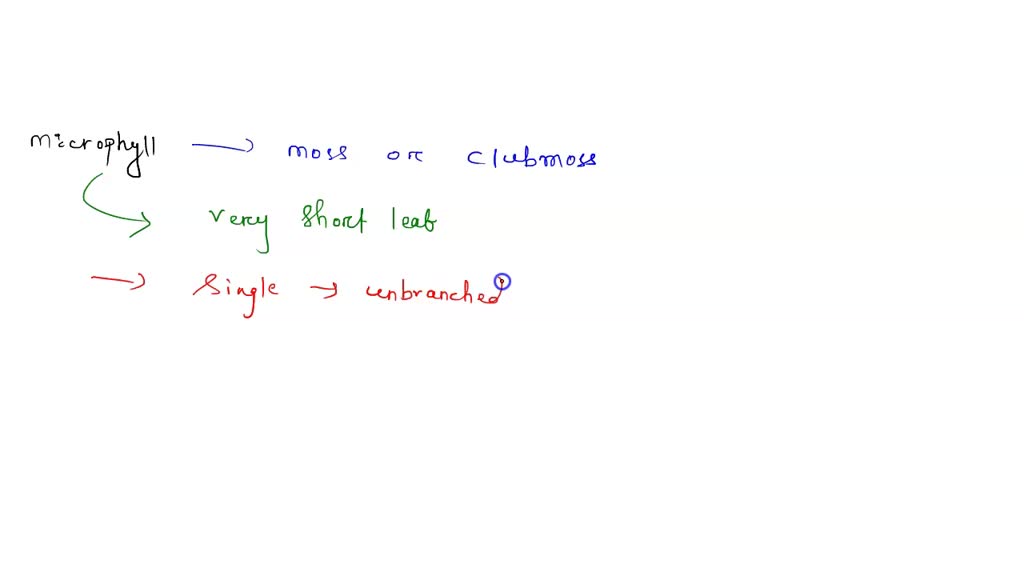 microphyll → moss or clubmoss
very short leaf
→ single → unbranched